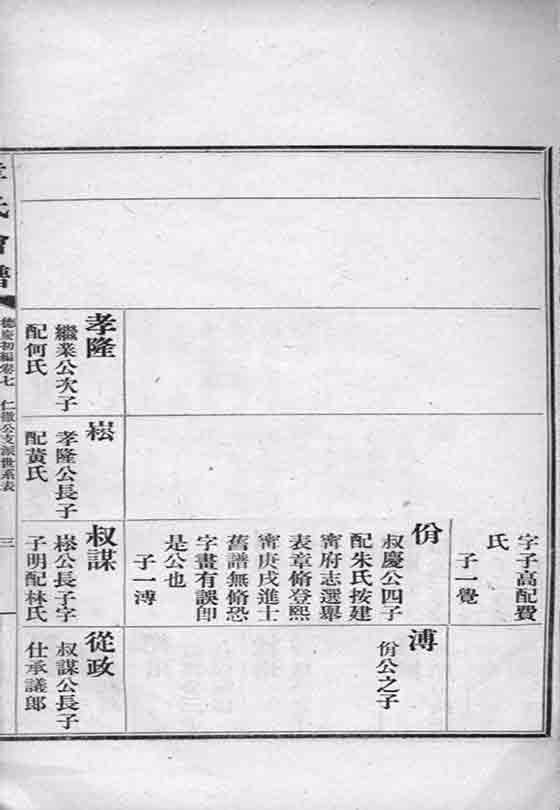 字子高配費
氏
子一覺
份
叔慶公四子
配朱氏按建
甯府志選舉
表章脩登熙
甯庚戌進士
舊譜無脩恐
字畫有誤卽
是公也
子一溥
溥
份公之子
孝隆
繼業公次子
配何氏
崧
孝隆公長子
配黃氏
叔謀
崧公長子字
子明配林氏
從政
叔謀公長子
仕承議郎
章氏會譜
德慶初編卷七
仁徹公支派世系表
三